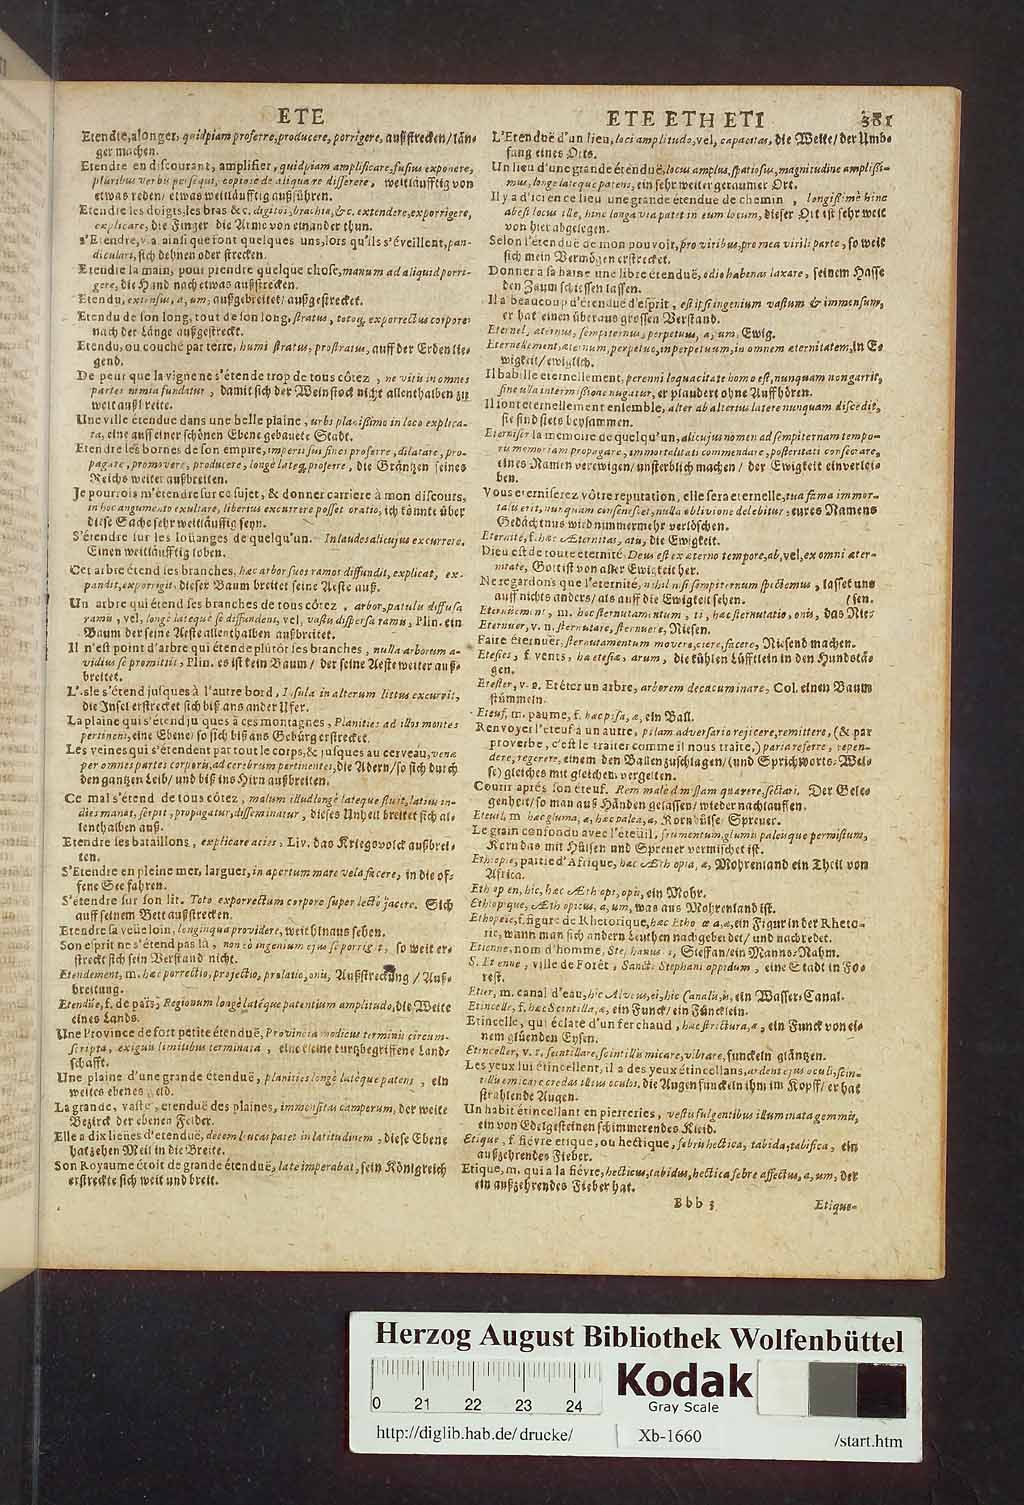 ETE
Etendre, alonger, quidpiam proferre, producere, porrigere, außstrecken/ län-
ger machen.
Etendre en discourant, amplifier, quidpiam amplificare, fusius exponere,
pluribus verbis persequi, copiose de aliqua re disserere, weitläufftig von
etwas reden/ etwas weitläufftig außführen.
Etendre les doigts, les bras &c. digitos, brachia, &c. extendere, exporrigere,
explicare, die Finger die Arme von einander thun.
s'Etendre, v. a. ainsi que font quelques uns, lors qu'ils s'éveillent, pan-
diculari, sich dehnen oder strecken.
Etendre la main, pour prendre quelque chose, manum ad aliquid porri-
gere, die Hand nach etwas außstrecken.
Etendu, extensus, a, um, außgebreitet/ außgestrecket.
Etendu de son long, tout de son long, stratus, totoq, exporrectus corpore
nach der Länge außgestreckt.
Etendu, ou couché par terre, humi stratus, prostratus, auff der Erden lie-
gend.
De peur que la vigne ne s'étende trop de tous côtez, ne vitis in omnes
partes nimia fundatur, damit sich der Weinstock nicht allenthalben zu
weit außbreite.
Une ville étendue dans une belle plaine, urbs planissimo in loco explica-
ta, eine auff einer schönen Ebene gebauete Stadt.
Etendre les bornes de son empire, imperii sui fines proferre, dilatare, pro-
pagare, promovere, producere, longè lateq, proferre, die Gräntzen seines
Reichs weiter außbreiten.
Je pourrois m'étendre sur ce sujet, & donner carriere à mon discours,
in hoc argumento exultare, libertus excurrere posset oratio, ich könnte über
diese Sache sehr weitläuffig seyn.
S'étendre sur les loüanges de quelqu'un. In laudes alicujus excurrere.
Einen weitläufftig loben.
Cet arbre étend ses branches, hæc arbor suos ramos diffundit, explicat, ex-
pandit, exporrigit, dieser Baum breitet seine Aeste auß.
Un arbre qui étend ses branches de tous côtez, arbor, patulis diffusa
ramis, vel, longè lateque se diffundens, vel, vastis dispersa ramis, Plin. ein
Baum der seine Aeste allenthalben außbreitet.
Il n'est point d'arbre qui étende plûtôt ses branches, nulla arborum a-
vidius se promittit, Plin. es ist kein Baum/ der seine Aeste weiter auß-
breitet.
L'Isle s'étend jusques à l'autre bord, Insula in alterum littus excurrit,
die Insel erstrecket sich biß ans ander Ufer.
La plaine qui s'étend jusques à ces montagnes, Planities ad illos montes
pertinens, eine Ebene/ so sich biß ans Gebürg erstrecket.
Les veines qui s'étendent par tout le corps, & jusques au cerveau, venæ
per omnes partes corporis, ad cerebrum pertinentes, die Adern/ so sich durch
den gantzen Leib/ und biß ins Hirn außbreiten.
Ce mal s'étend de tous côtez, malum illud longè lateque fluit, latius in-
dies manat, serpit, propagatur, disseminatur, dieses Unheil breitet sich al-
lenthalben auß.
Etendre les bataillons, explicare acies, Liv. das Kriegsvolck außbrei-
ten.
S'Etendre en pleine mer, larguer, in apertum mare vela facere, in die of-
fene See fahren.
S'étendre sur son lit. Toto exporrectum corpore super lecto jacere. Sich
auff seinem Bett außstrecken.
Etendre sa veüe loin, longinqua providere, weit hinaus sehen.
Son esprit ne s'étend pas là, non eò ingenium ejus se porrigit, so weit er-
streckt sich sein Verstand nicht.
Etendement, m. hæc porrectio, projectio, prolatio, onis, Außstreckung / Auß-
breitung.
Etendüe, f. de païs, Regionum longè latéque patentium amplitudo, die Weite
eines Lands.
Une Province de fort petite étenduë, Provincia modicus terminis circum-
scripta, exiguis limitibus terminata, eine kleine kurtzbegriffene Land-
schafft.
Une plaine d'une grande étenduë, planities longè latèque patens, ein
weites ebenes Feld.
La grande, vaste, etenduë des plaines, immensitas camporum, der weite
Bezirck der ebenen Felder.
Elle a dix lieües d'etenduë, decem leucas patet in latitudinem, diese Ebene
hat zehen Meil in die Breite.
Son Royaume étoit de grande étenduë, late imperabat, sein Königreich
erstreckte sich weit und breit.
ETE ETH ETI 381
L'Etenduë d'un lieu, loci amplitudo, vel, capacitas, die Weite/ der Umb-
fang eines Orts.
Un lieu d'une grande étenduë, locus amplus, spatiosus, magnitudine amplissi-
mus, longe lateque patens, ein sehr weiter geraumer Ort.
Il y a d'ici en ce lieu une grande étendue de chemin, longissimè hinc
abest locus ille, hinc longa via patet in eum locum, dieser Ort ist sehr weit
von hier abgelegen.
Selon l'étendue de mon pouvoir, pro viribus, pro mea virili parte, so weit
sich mein Vermögen erstrecket.
Donner à sa haine une libre étenduë, odio habenas laxare, seinem Hasse
den Zaum schiessen lassen.
Il a beaucoup d'étendue d'esprit, est ipsi ingenium vastum & immensum,
er hat einen überaus grossen Verstand.
Eternel, æternus, sempiternus, perpetuus, a, um, Ewig.
Eternellement, æternum, perpetuo, in perpetuum, in omnem æternitatem, in E-
wigkeit/ ewiglich.
Il babille eternellement, perenni loquacitate homo est, nunquam non garrit,
sine ulla intermissione nugatur, er plaudert ohne Auffhören.
Il sont eternellement ensemble, alter ab alterius latere nunquam discedit,
sie sind stets beysammen.
Eterniser la memoire de quelqu'un, alicujus nomen ad sempiternam tempo-
ris memoriam propagare, immortalitati commendare, posteritati consecrare,
eines Namen verewigen/ unsterblich machen/ der Ewigkeit einverlei-
ben.
Vous eterniserez vôtre reputation, elle sera eternelle, tua fama immor-
talis erit, nunquam consenescet, nulla oblivione delebitur, eures Namens
Gedächtnus wird nimmermehr verlöschen.
Eternité, f. hæc Æternitas, atis, die Ewigkeit.
Dieu est de toute eternité. Deus est ex æterno tempore, ab, vel, ex omni æter-
nitate, Gott ist von aller Ewigkeit her.
Ne regardons que l'eternité, nihil nisi sempiternum spectemus, lasset uns
auff nichts anders/ als auff die Ewigkeit sehen. /sen.
Eternüement, m. hoc sternutamentum, ti, hæc sternutatio, onis, das Nie-
Eternuer, v. n. sternutare, sternuere, Niesen.
Faire éternuer, sternutamentum movere, ciere, facere, Niesend machen.
Etesies, f. vents, hæ etesiæ, arum, die kühlen Lüfftlein in den Hundstä-
gen.
Etester, v. a. Etéter un arbre, arborem decacuminare, Col. einen Baum
stümmeln.
Eteuf, m. paume, f. hæc pila, æ, ein Ball.
Renvoyer l'eteuf à un autre, pilam adversario rejicere, remittere, (& par
proverbe, c'est le traiter comme il nous traite,) paria referre, repen-
dere, regerere, einem den Ballen zuschlagen/ (und Sprichworts-Wei-
se) gleiches mit gleichem vergelten.
Courir après son éteuf. Rem male dimissam quærere, sectari. Der Gele-
genheit/ so man auß Händen gelassen/ wieder nachlauffen.
Eteul, m hæc gluma, æ, hæc palea, æ, Kornhülse/ Spreuer.
Le grain confondu avec l'éteuil, frumentum, glumis paleisque permistum,
Korn das mit Hülsen und Spreuer vermischet ist.
Ethiopie, partie d'Afrique, hæc Æthiopia, æ, Mohrenland ein Theil von
Africa.
Ethiopien, hic, hæc Æthiops, opis, ein Mohr.
Ethiopique, Æthiopicus, a, um, was aus Mohrenland ist.
Ethopeïe, f. figure de Rhetorique, hæc Ethopœia, æ, ein Figur in der Rheto-
ric, wann man sich andern Leuthen nachgebeidet/ und nachredet.
Etienne, nom d'homme, Stephanus, i, Steffan/ ein Manns-Nahm.
S. Etienne, ville de Forêt, Sancti Stephani oppidum, eine Stadt in Fo-
rest.
Etier, m. canal d'eau, hic Alveus, ei, hic Canalis, is, ein Wasser-Canal.
Etincelle, f. hæc Scintilla, æ, ein Funck/ ein Füncklein.
Etincelle, qui éclate d'un fer chaud, hæc strictura, æ, ein Funck von ei-
nem glüenden Eysen.
Etinceller, v. n. scintillare, scintillis micare, vibrare, funckeln gläntzen.
Les yeux lui étincellent, il a des yeux étincellans, ardent ejus oculi, scin-
tillis emicare credas illius oculos, die Augen funckeln ihm im Kopff/ er hat
strahlende Augen.
Un habit étincellant en pierreries, vestis fulgentibus illuminata gemmis,
ein von Edelgesteinen schimmerendes Kleid.
Etique, f. fiévre etique, ou hectique, febris hectica, tabida, tabifica, ein
außzehrendes Fieber.
Etique, m. qui a la fiévre, hecticus, tabidus, hectica febre affectus, a, um, der
ein außzehrendes Fieber hat.
Bbb 3 Etique-
Herzog August Bibliothek Wolfenbüttel
0 21 22 23 24
Kodak
Gray Scale
http://diglib.hab.de/drucke/ Xb-1660 /start.htm